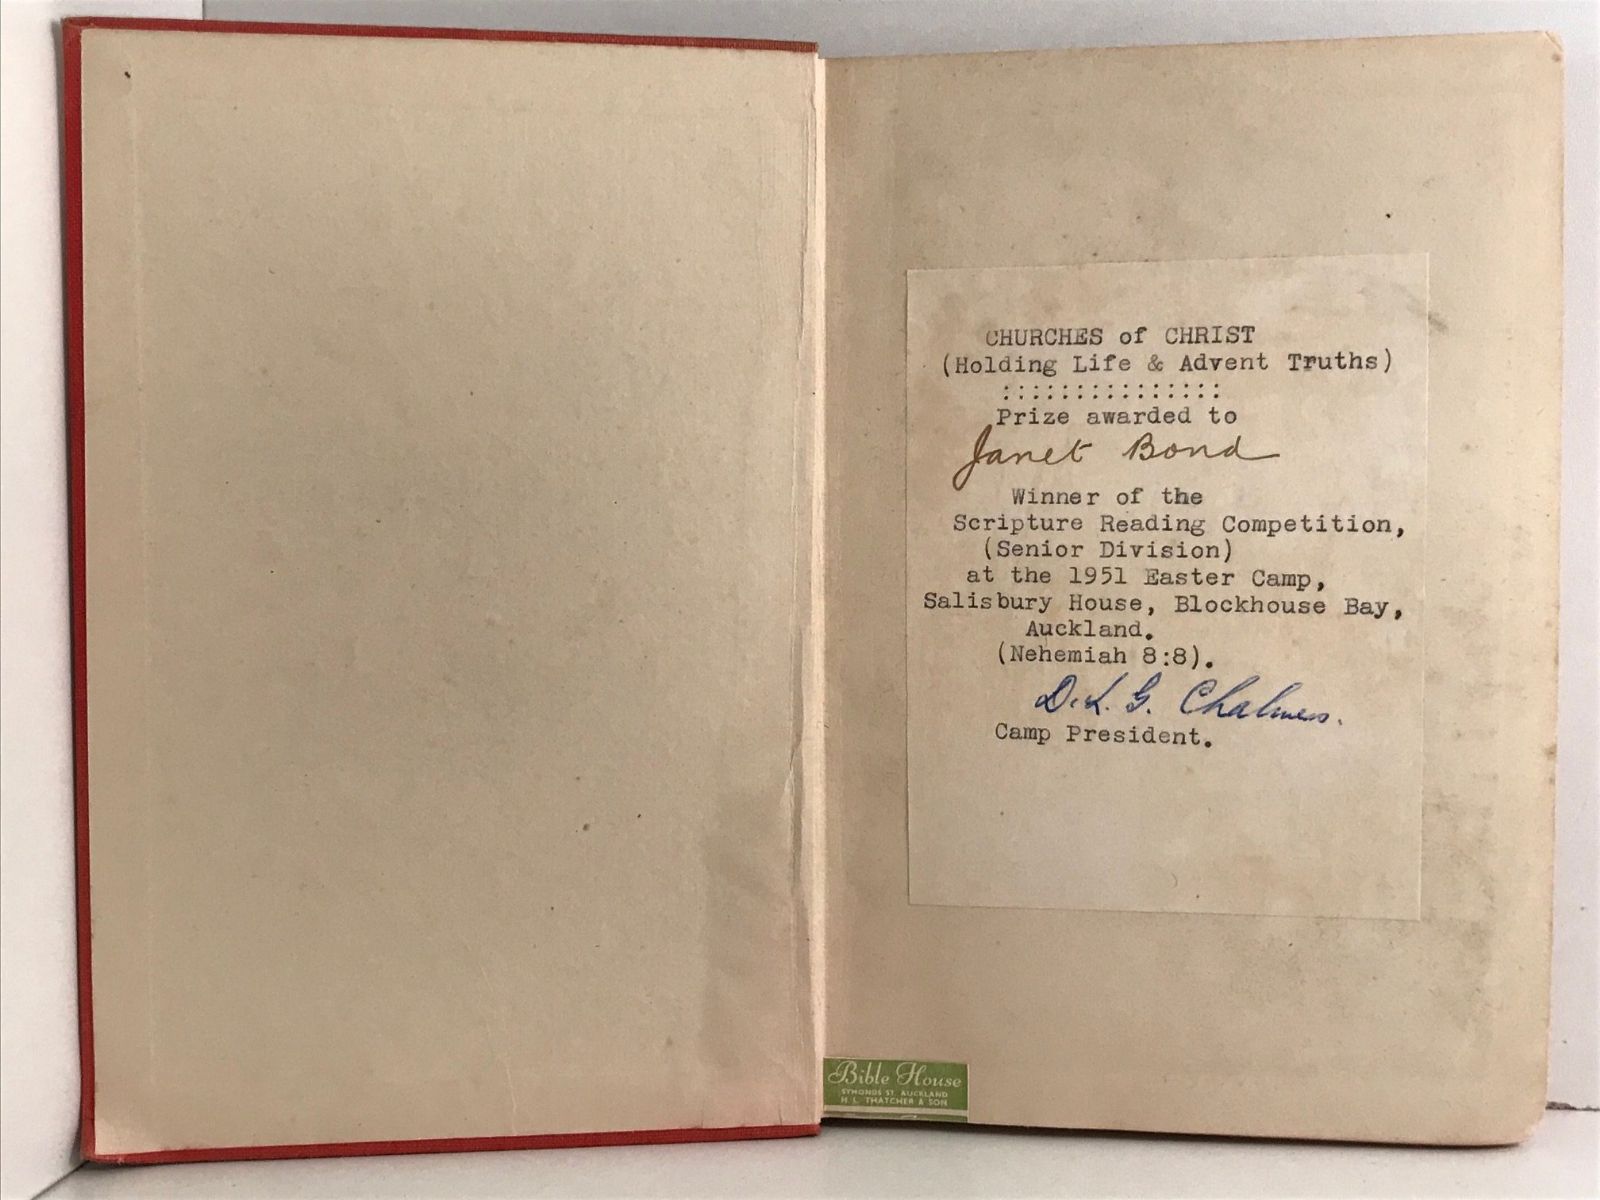 CHURCHES of CHRIST
(Holding Life & Advent Truths)
:::::::::::::::
Prize awarded to
Janet Bond
Winner of the
Scripture Reading Competition,
(Senior Division)
at the 1951 Easter Camp,
Salisbury House, Blockhouse Bay,
Auckland.
(Nehemiah 8:8).
D.L. G. Chalmers.
Camp President.
Bible House
SYMONDS ST. AUCKLAND
H. L. THATCHER & SON